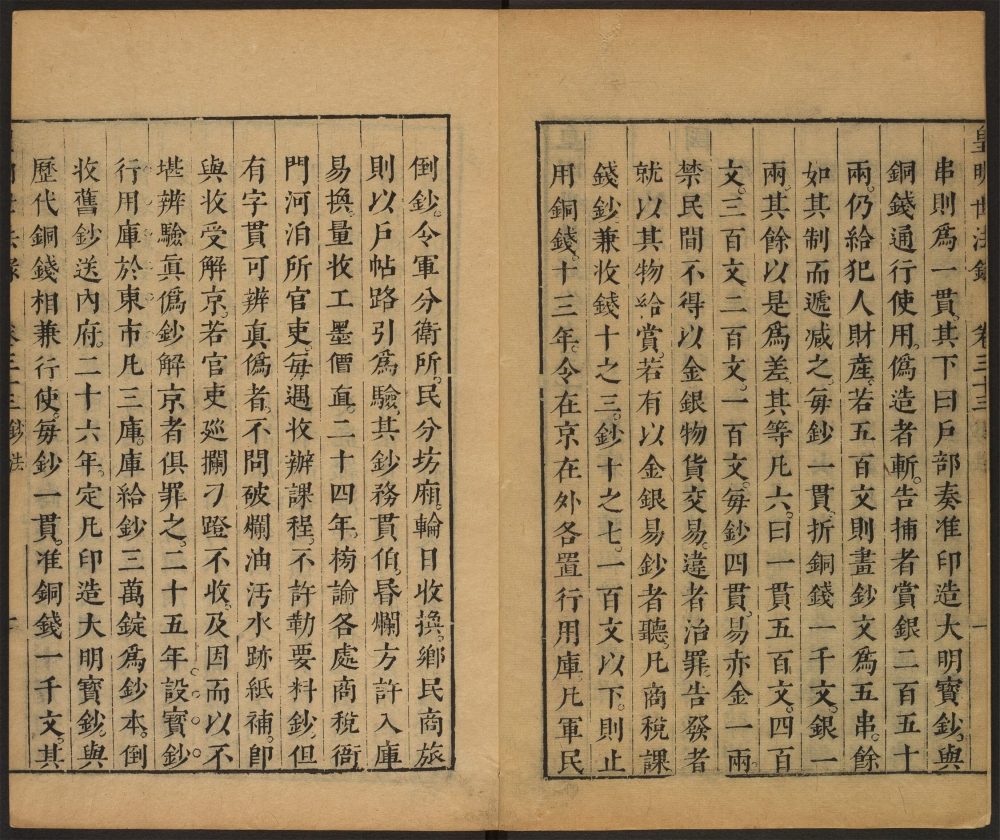 皇明世法錄 卷三十三 一
串則爲一貫其下曰戶部奏准印造大明寶鈔與
銅錢通行使用僞造者斬告捕者賞銀二百五十
兩仍給犯人財產若五百文則畫鈔文爲五串餘
如其制而遞減之每鈔一貫折銅錢一千文銀一
兩其餘以是爲差其等凡六曰一貫五百文四百
文三百文二百文一百文每鈔四貫易赤金一兩
禁民間不得以金銀物貨交易違者治罪告發者
就以其物給賞若有以金銀易鈔者聽凡商稅課
錢鈔兼收錢十之三鈔十之七一百文以下則止
用銅錢十三年令在京在外各置行用庫凡軍民
倒鈔令軍分衛所民分坊廂輪日收換鄉民商旅
則以戶帖路引爲驗其鈔務貫伯昏爛方許入庫
易換量收工墨價直二十四年榜諭各處商稅衙
門河泊所官吏每遇收辦課程不許勒要料鈔但
有字貫可辨真僞者不問破爛油汚水跡紙補卽
與收受解京若官吏廵攔刁蹬不收及因而以不
堪辨驗眞僞鈔解京者俱罪之二十五年設寶鈔
行用庫於東市凡三庫庫給鈔三萬錠爲鈔本倒
收舊鈔送內府二十六年定凡印造大明寶鈔與
歷代銅錢相兼行使每鈔一貫准銅錢一千文其
卷三十三 鈔法